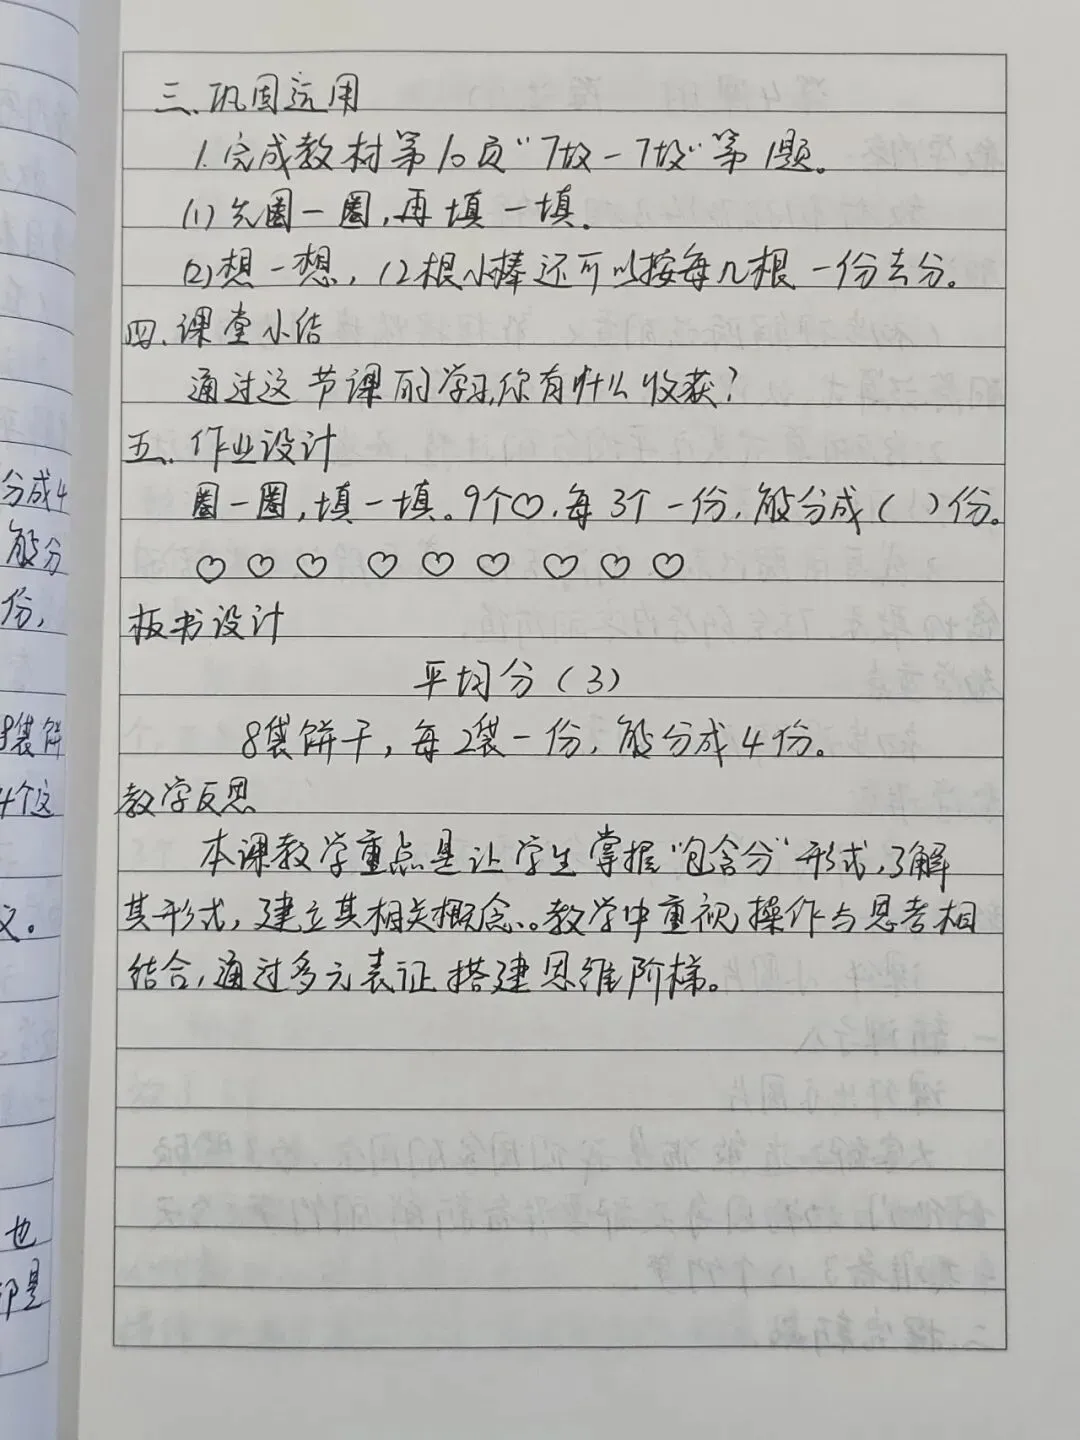 三、巩固运用
1.完成教材第10页“做一做”第1题。
(1)先圈一圈,再填一填.
(2)想一想,12根小棒还可以按每几根一份去分。
四、课堂小结
通过这节课的学习,你有什么收获?
五、作业设计
圈一圈,填一填。9个♡,每3个一份,能分成( )份。
♡ ♡ ♡ ♡ ♡ ♡ ♡ ♡ ♡
板书设计
平均分(3)
8袋饼干,每2袋一份,能分成4份。
教学反思
本课教学重点是让学生掌握“包含分”形式,了解
其形式,建立其相关概念。教学中重视操作与思考相
结合,通过多元表证搭建思维阶梯。
分成4
能分
份,
8袋饼
4个这
义。
也
即是